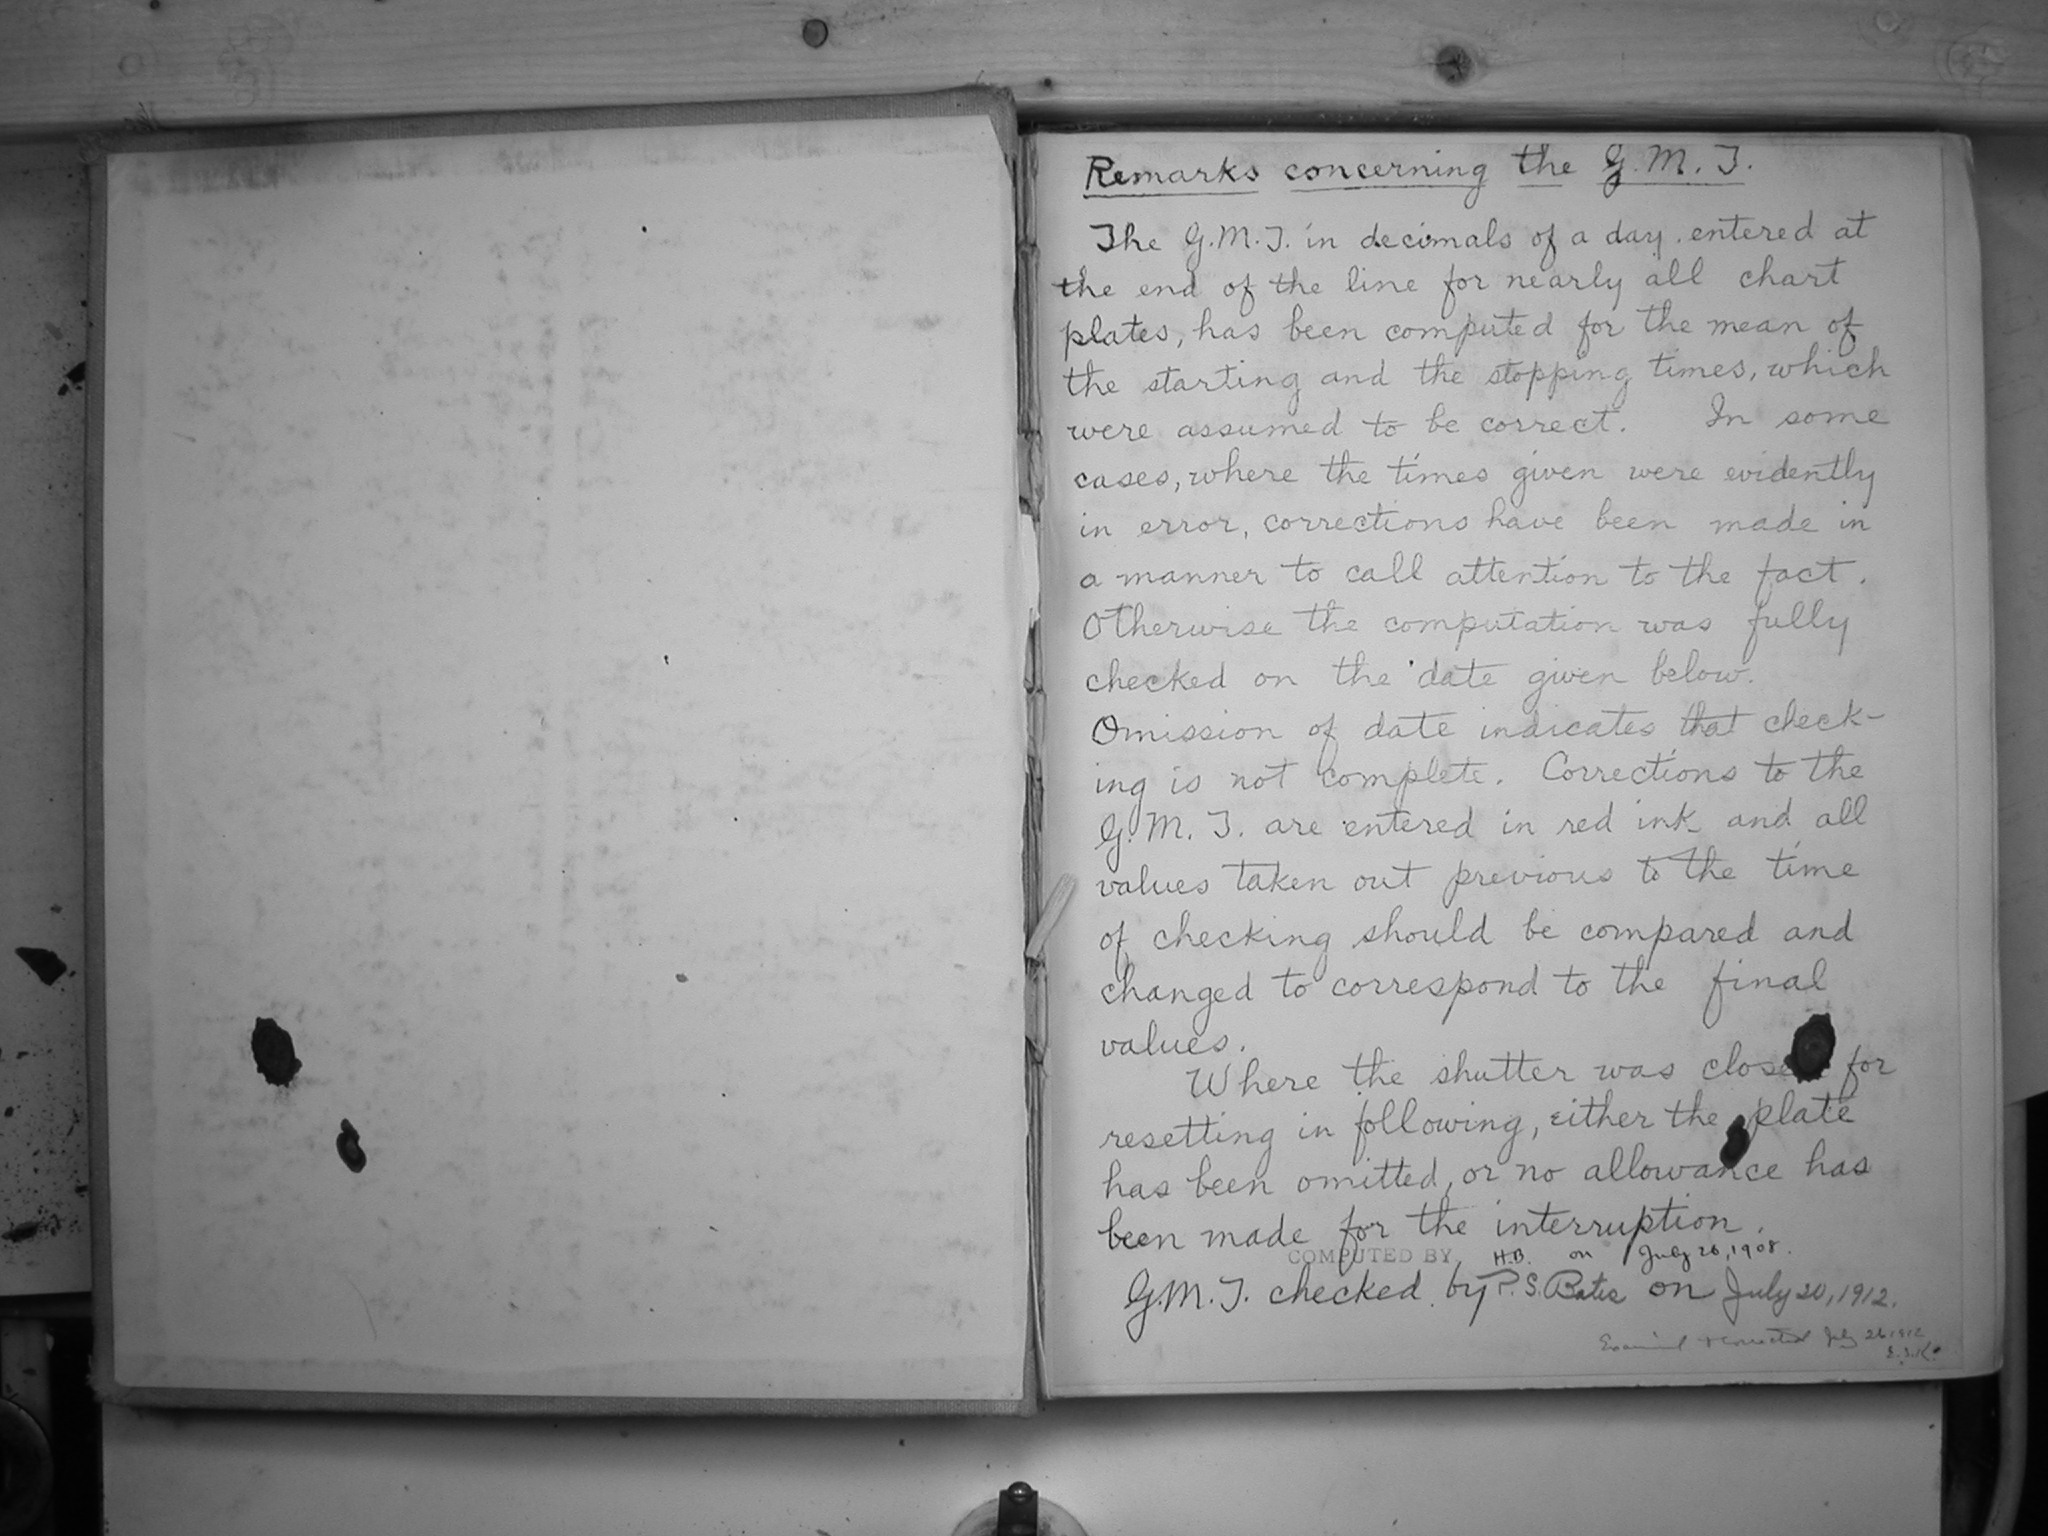 Remarks concerning the G.M.T.
The G.M.T. in decimals of a day, entered at
the end of the line for nearly all chart
plates, has been computed for the mean of
the starting and the stopping times, which
were assumed to be correct. In some
cases, where the times given were evidently
in error, corrections have been made in
a manner to call attention to the fact.
Otherwise the computation was fully
checked on the date given below.
Omission of date indicates that check-
ing is not complete. Corrections to the
G.M.T. are entered in red ink and all
values taken out previous to the time
of checking should be compared and
changed to correspond to the final
values.
Where the shutter was closed for
resetting in following, either the plate
has been omitted, or no allowance has
been made for the interruption.
COMPUTED BY H.B. on July 26, 1908.
G.M.T. checked by P.S. Bates on July 20, 1912.
Examined & corrected July 26 1912